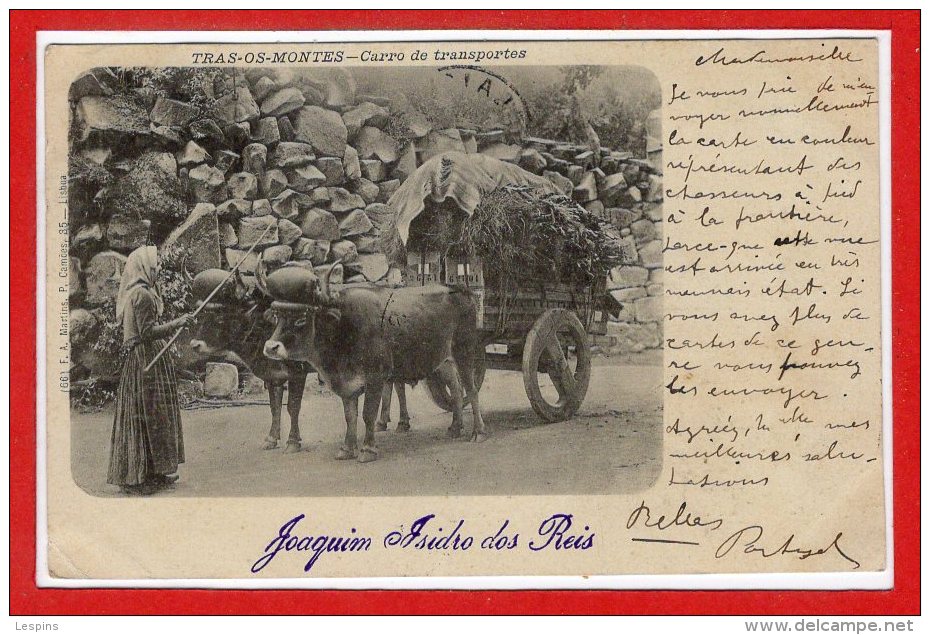 TRAS-OS-MONTES—Carro de transportes
Mademoiselle
Je vous prie de m'en
voyer nouvellement
la carte en couleur
réprésentant des
chasseurs à pied
à la frontière,
parce-que cette vue
est arrivée en très
mauvais état. Si
vous avez plus de
cartes de ce gen-
re vous pouvez
les envoyer.
Agréez, Mlle mes
meilleures salu-
tations
Bellas
Portugal
(66) F. A. Martins, P. Camões, 35.— Lisboa
Joaquim Isidro dos Reis
Lespins
www.delcampe.net